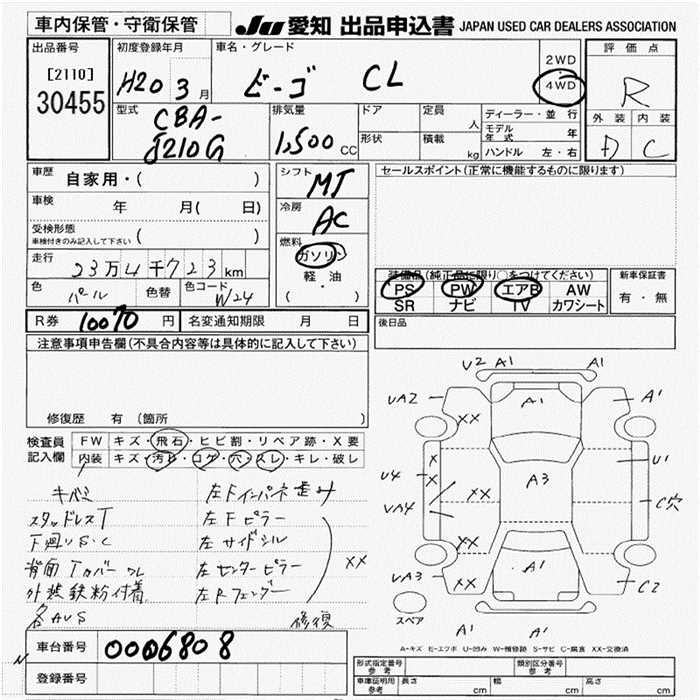 車内保管・守衛保管
JU 愛知 出品申込書 JAPAN USED CAR DEALERS ASSOCIATION
出品番号
[2110]
30455
初度登録年月
H20 3 月
車名・グレード
ビーゴ CL
2WD
4WD
評価点
R
外装 内装
D C
型式
CBA-
J210G
排気量
1,500 CC
ドア
形状
定員
人
積載
kg
ディーラー・並行
モデル年式 年
ハンドル 左・右
車歴
自家用・( )
車検
年 月( 日)
受検形態
車検付きのみ記入して下さい ( )
走行
23万4千723km
色
パール
色替
色コード
W24
シフト
MT
冷房
AC
燃料
ガソリン
軽・油
( ・ )
セールスポイント(正常に機能するものに限ります)
装備品(純正品に限り○をつけてください)
PS PW エアB AW
SR ナビ TV カワシート
新車保証書
有・無
後日品
R券 10070 円
名変通知期限 月 日
注意事項申告欄(不具合内容等は具体的に記入して下さい)
修復歴 有(箇所 )
検査員
記入欄
FW キズ・飛石・ヒビ割・リペア跡・X要
内装 キズ・汚れ・コゲ・穴・スレ・キレ・破レ
キバミ
スタッドレスT
下廻りS・C
背面Tカバーワレ
外装鉄粉付着
各AUS
左Fインパネ歪み
左Fピラー
左サイドシル
左センターピラー
左Rフェンダー
XX
修復
U2 A1 A1
UA2 XX A1 A'
U4 X X A3 U1
UA4 XX C穴
UA3 XX XX A1 C2
スペア
A1 A1
A-キズ E-エクボ U-凹み W-補修跡 S-サビ C-腐食 XX-交換済
車台番号
0006808
登録番号
形式指定番号
参考
類別区分番号
参考
車庫証明用
参考
長さ cm
幅 cm
高さ cm